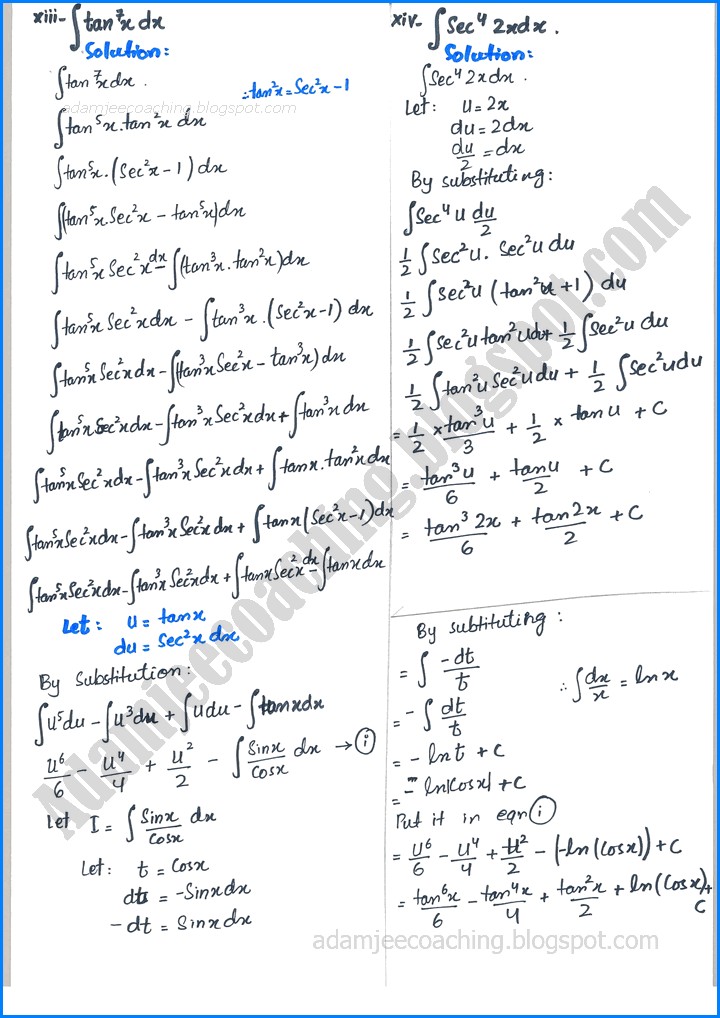 xiii- ∫tan⁷x dx
Solution:
∫tan⁷x dx .
∴tan²x = Sec²x - 1
adamjeecoaching.blogspot.com
∫tan⁵x . tan²x dx
∫tan⁵x . (Sec²x - 1) dx
∫(tan⁵x Sec²x - tan⁵x)dx
∫tan⁵x Sec²x dx - ∫(tan³x . tan²x)dx
∫tan⁵x Sec²x dx - ∫tan³x . (Sec²x - 1) dx
∫tan⁵x Sec²x dx - ∫(tan³x Sec²x - tan³x) dx
∫tan⁵x Sec²x dx - ∫tan³x Sec²x dx + ∫tan³x dx
∫tan⁵x Sec²x dx - ∫tan³x Sec²x dx + ∫tanx . tan²x dx
∫tan⁵x Sec²x dx - ∫tan³x Sec²x dx + ∫tanx (Sec²x - 1) dx
∫tan⁵x Sec²x dx - ∫tan³x Sec²x dx + ∫tanx Sec²x dx - ∫tanx dx
Let : u = tanx
du = Sec²x dx
By Substitution:
∫u⁵du - ∫u³du + ∫u du - ∫tanx dx
u⁶/6 - u⁴/4 + u²/2 - ∫Sinx/Cosx dx → (i)
Let I = ∫ Sinx/Cosx dx
Let : t = Cosx
dt = -Sinx dx
-dt = Sinx dx
xiv- ∫Sec⁴ 2x dx .
Solution:
∫Sec⁴ 2x dx .
Let : u = 2x
du = 2dx
du/2 = dx
By substituting:
∫Sec⁴ u du/2
1/2 ∫Sec²u . Sec²u du
1/2 ∫Sec²u (tan²u + 1) du
1/2 ∫Sec²u tan²u du + 1/2 ∫Sec²u du
1/2 ∫tan²u Sec²u du + 1/2 ∫Sec²u du
= 1/2 × tan³u/3 + 1/2 × tan u + C
= tan³u/6 + tan u/2 + C
= tan³ 2x/6 + tan 2x/2 + C
By subtituting :
= ∫ -dt/t
∴ ∫ dx/x = ln x
= - ∫ dt/t
= - ln t + C
= - ln|Cosx| + C
=
Put it in eqn (i)
= u⁶/6 - u⁴/4 + u²/2 - (-ln (Cosx)) + C
= tan⁶x/6 - tan⁴x/4 + tan²x/2 + ln(Cosx) + C
adamjeecoaching.blogspot.com
Adamjeecoaching.blogspot.com